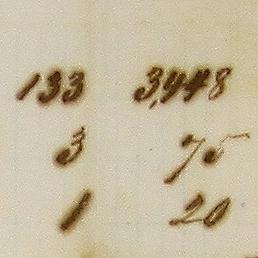 133 3,948
3 75
1 20